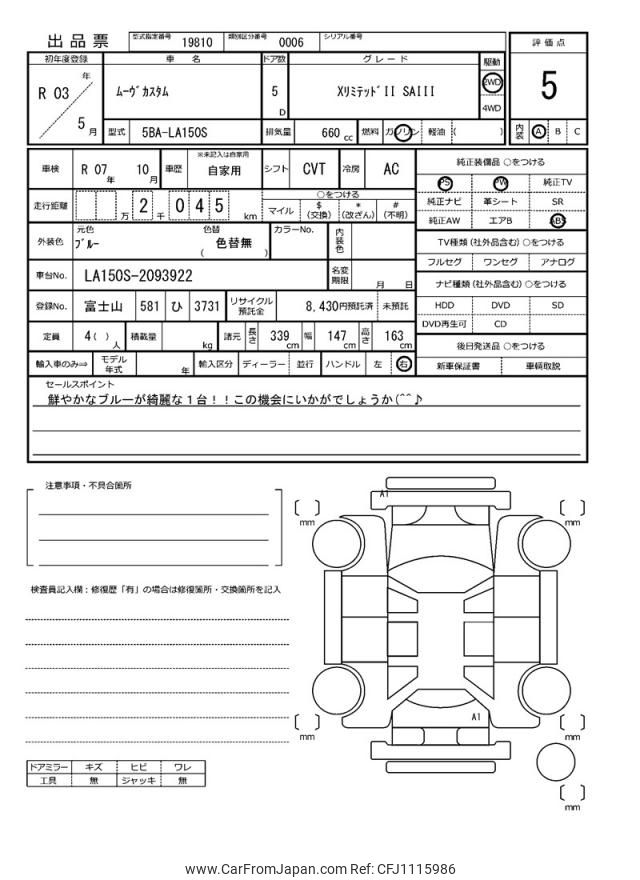 出品票 型式指定番号 19810 類別区分番号 0006 シリアル番号
評価点
5
内装 A B C
初年度登録 車名 ドア数 グレード 駆動
R 03 年 5 月
ムーヴカスタム 5 D Xリミテッド II SAIII 2WD
4WD
型式 5BA-LA150S 排気量 660 cc 燃料 ガソリン 軽油 ( )
車検 R 07 年 10 月 車歴 ※未記入は自家用 自家用 シフト CVT 冷房 AC
走行距離 万 2 千 0 4 5 km ○をつける
マイル $ (交換) * (改ざん) # (不明)
外装色 元色 ブルー 色替 ( 色替無 ) カラーNo. 内装色
車台No. LA150S-2093922 名変期限 月 日
登録No. 富士山 581 ひ 3731 リサイクル預託金 8,430円預託済 未預託
定員 4( ) 人 積載量 kg 諸元 長さ 339 cm 幅 147 cm 高さ 163 cm
輸入車のみ⇒ モデル年式 年 輸入区分 ディーラー 並行 ハンドル 左 右
純正装備品 ○をつける
PS PW 純正TV
純正ナビ 革シート SR
純正AW エアB ABS
TV種類 (社外品含む) ○をつける
フルセグ ワンセグ アナログ
ナビ種類 (社外品含む) ○をつける
HDD DVD SD
DVD再生可 CD
後日発送品 ○をつける
新車保証書 車輌取説
セールスポイント
鮮やかなブルーが綺麗な1台!!この機会にいかがでしょうか(^^♪
注意事項・不具合箇所
検査員記入欄:修復歴「有」の場合は修復箇所・交換箇所を記入
ドアミラー キズ ヒビ ワレ
工具 無 ジャッキ 無
A1
mm
mm
A1
mm
mm
mm
www.CarFromJapan.com Ref: CFJ1115986